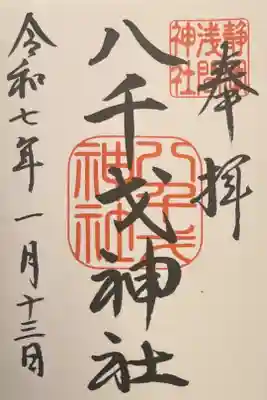 奉拝
静岡
浅間
神社
八千戈神社
八千戈
神社
令和七年一月十三日